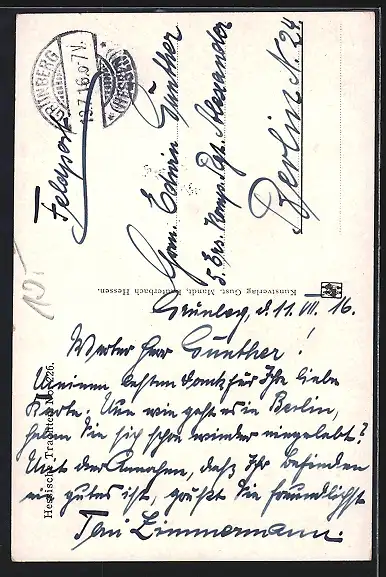 GRÜNBERG
(HESSEN)
12.7.16.6-7N.
Feldpost
Gren. Edwin Günther
5. Ers. Komp. Rgt. Alexander
Berlin N. 24.
Kunstverlag Gust. Mandt, Lauterbach Hessen.
Hessische Trachten No. 226.
10.-
Grünberg, d. 11. VII. 16.
Werter Herr Günther!
Meinen besten Dank für Ihre liebe
Karte. Nun wie geht es in Berlin,
haben Sie sich schon wieder eingelebt?
Mit der Annahme, daß Ihr Befinden
ein gutes ist, grüßt Sie freundlichst
Toni Zimmermann.